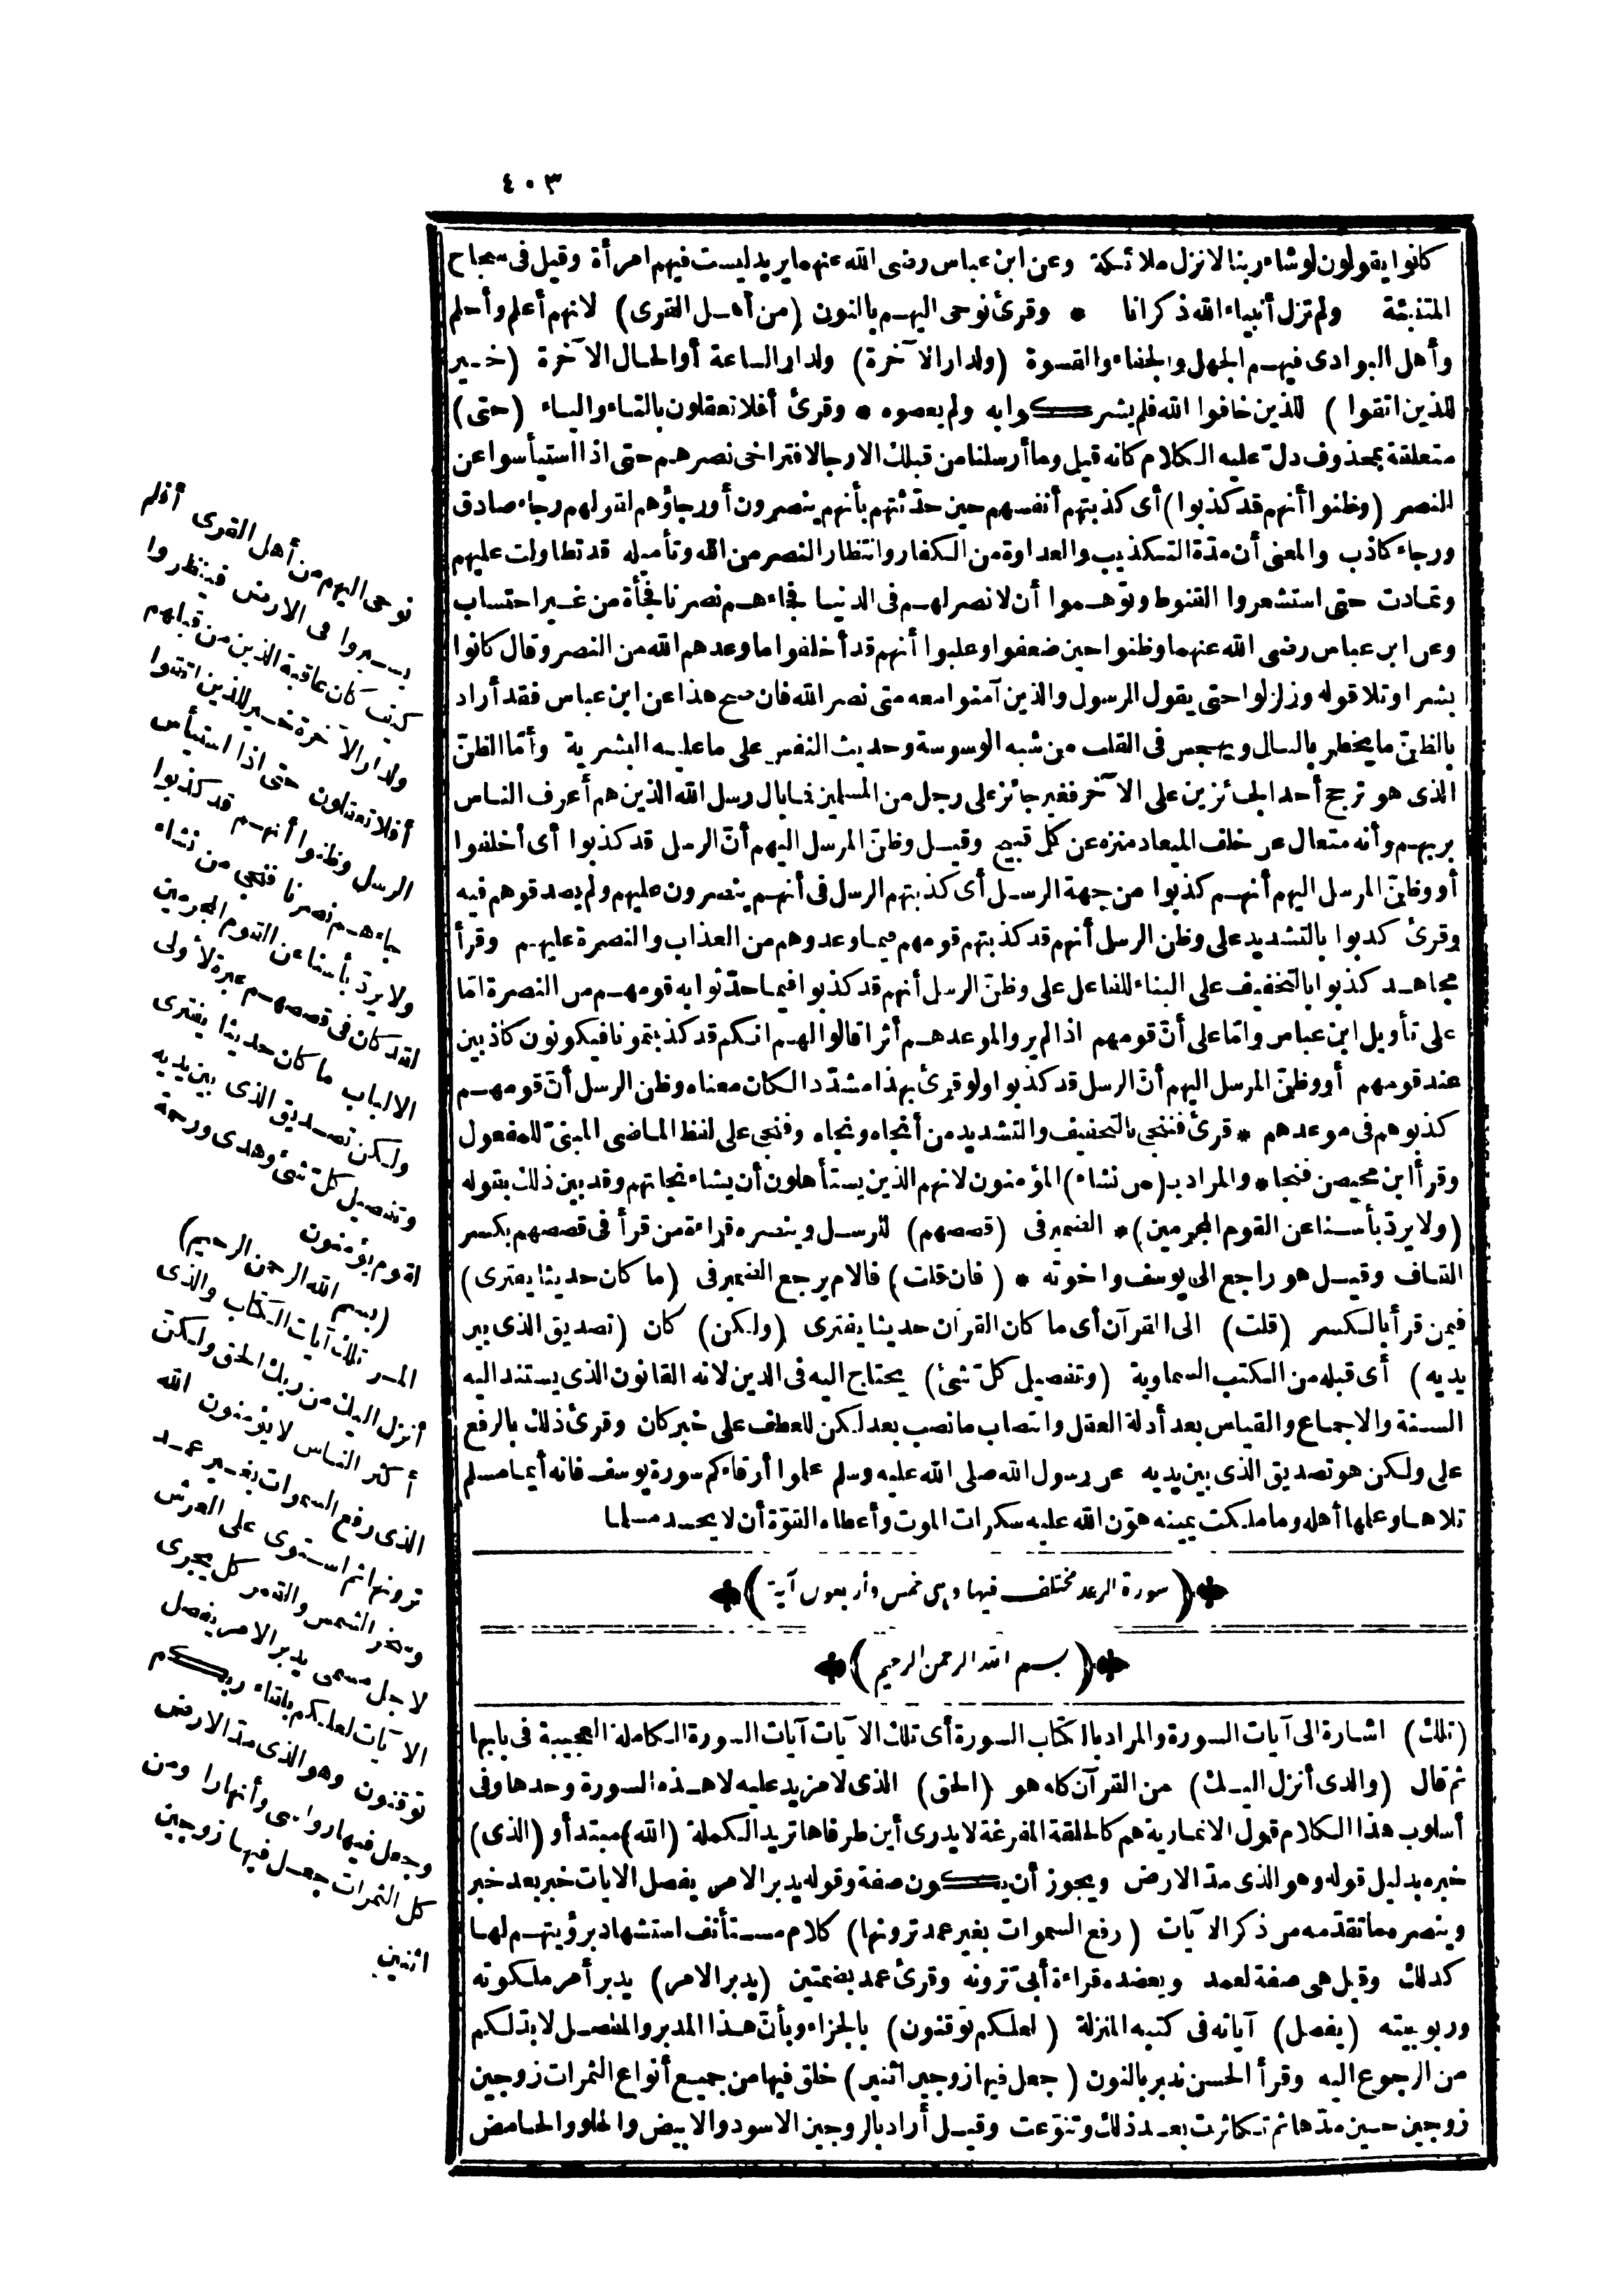 ٤٠٣
كانوا يقولون لو شاء ربنا لانزل ملائكة وعن ابن عباس رضى الله عنهما يريد ليست فيهم امرأة وقيل فى سجاح
المتنبئة ولم تزل أنبياء الله ذكرانا * وقرئ نوحى اليهم بالنون (من أهل القرى) لانهم أعلم وأحلم
وأهل البوادى فيهم الجهل والجفاء والقسوة (ولدار الآخرة) ولدار الساعة أو الحال الآخرة (خير
للذين اتقوا) للذين خافوا الله فلم يشركوا به ولم يعصوه * وقرئ أفلا تعقلون بالتاء والياء (حتى)
متعلقة بمحذوف دلّ عليه الكلام كانه قيل وما أرسلنا من قبلك الا رجالا فتراخى نصرهم حتى اذا استيأسوا عن
النصر (وظنوا أنهم قد كذبوا) أى كذبتهم أنفسهم حين حدّثتهم بأنهم ينصرون أو رجاؤهم لقولهم رجاء صادق
ورجاء كاذب والمعنى أن مدّة التكذيب والعداوة من الكفار وانتظار النصر من الله وتأميله قد تطاولت عليهم
وتمادت حتى استشعروا القنوط وتوّهموا أن لا نصر لهم فى الدنيا فجاءهم نصرنا فجأة من غير احتساب
وعن ابن عباس رضى الله عنهما وظنوا حين ضعفوا وغلبوا أنهم قد أخلفوا ما وعدهم الله من النصر وقال كانوا
بشرا وتلا قوله وزلزلوا حتى يقول الرسول والذين آمنوا معه متى نصر الله فان صح هذا عن ابن عباس فقد أراد
بالظنّ ما يخطر بالبال ويهجس فى القلب من شبه الوسوسة وحديث النفس على ما عليه البشرية وأمّا الظنّ
الذى هو ترجح أحد الجائزين على الآخر فغير جائز على رجل من المسلمين فما بال رسل الله الذين هم أعرف الناس
بربهم وأنه متعال عن خلف الميعاد منزه عن كل قبيح وقيل وظنّ المرسل اليهم أنّ الرسل قد كذبوا أى أخلفوا
أو وظنّ المرسل اليهم أنهم كذبوا من جهة الرسل أى كذبتهم الرسل فى أنهم ينصرون عليهم ولم يصدقوهم فيه
وقرئ كذبوا بالتشديد على وظن الرسل أنهم قد كذبتهم قومهم فيما وعدوهم من العذاب والنصرة عليهم وقرأ
مجاهد كذبوا بالتخفيف على البناء للفاعل على وظنّ الرسل أنهم قد كذبوا فيما حدّثوا به قومهم من النصرة امّا
على تأويل ابن عباس وامّا على أنّ قومهم اذا لم يروا لموعدهم أثرا قالوا لهم انكم قد كذبتمونا فيكونون كاذبين
عند قومهم أو وظنّ المرسل اليهم أنّ الرسل قد كذبوا ولو قرئ بهذا مشدّدا لكان معناه وظن الرسل أنّ قومهم
كذبوهم فى موعدهم * قرئ فننجى بالتخفيف والتشديد من أنجاه ونجاه وفنجى على لفظ الماضى المبنىّ للمفعول
وقرأ ابن محيصن فنجا * والمراد بـ(من نشاء) المؤمنون لانهم الذين يستأهلون أن يشاء نجاتهم وقد بين ذلك بقوله
(ولا يردّ بأسنا عن القوم المجرمين) * الضمير فى (قصصهم) للرسل وينصره قراءة من قرأ فى قصصهم بكسر
القاف وقيل هو راجع الى يوسف واخوته * (فان قلت) فالام يرجع الضمير فى (ما كان حديثا يفترى)
فيمن قرأ بالكسر (قلت) الى القرآن أى ما كان القرآن حديثا يفترى (ولكن) كان (تصديق الذى بين
يديه) أى قبله من الكتب السماوية (وتفصيل كلّ شئ) يحتاج اليه فى الدين لانه القانون الذى يستند اليه
السنة والاجماع والقياس بعد أدلة العقل وانتصاب ما نصب بعد لكن للعطف على خبر كان وقرئ ذلك بالرفع
على ولكن هو تصديق الذى بين يديه عن رسول الله صلى الله عليه وسلم علموا أرقاءكم سورة يوسف فانه أيما مسلم
تلاها وعلمها أهله وما ملكت يمينه هوّن الله عليه سكرات الموت وأعطاه القوّة أن لا يحسد مسلما
(سورة الرعد مختلف فيها وهى خمس وأربعون آية)
(بسم الله الرحمن الرحيم)
(تلك) اشارة الى آيات السورة والمراد بالكتاب السورة أى تلك الآيات آيات السورة الكاملة العجيبة فى بابها
ثم قال (والذى أنزل اليك) من القرآن كله هو (الحق) الذى لا مزيد عليه لا هذه السورة وحدها وفى
أسلوب هذا الكلام قول الانمارية هم كالحلقة المفرغة لا يدرى أين طرفاها تريد الكملة (الله) مبتدأ و (الذى)
خبره بدليل قوله وهو الذى مدّ الارض ويجوز أن يكون صفة وقوله يدبر الامر يفصل الآيات خبر بعد خبر
وينصره ما تقدّمه من ذكر الآيات (رفع السموات بغير عمد ترونها) كلام مستأنف استشهاد برؤيتهم لها
كذلك وقيل هى صفة لعمد ويعضده قراءة أبىّ ترونه وقرئ عمد بضمتين (يدبر الامر) يدبر أمر ملكوته
وربوبيته (يفصل) آياته فى كتبه المنزلة (لعلكم توقنون) بالجزاء وبأنّ هذا المدبر والمفصل لابدّ لكم
من الرجوع اليه وقرأ الحسن ندبر بالنون (جعل فيها زوجين اثنين) خلق فيها من جميع أنواع الثمرات زوجين
زوجين حين مدّها ثم تكاثرت بعد ذلك وتنوّعت وقيل أراد بالزوجين الاسود والابيض والحلو والحامض
نوحى اليهم من أهل القرى أفلم
يسيروا فى الارض فينظروا
كيف كان عاقبة الذين من قبلهم
ولدار الآخرة خير للذين اتقوا
أفلا تعقلون حتى اذا استيأس
الرسل وظنوا أنهم قد كذبوا
جاءهم نصرنا فنجى من نشاء
ولا يردّ بأسنا عن القوم المجرمين
لقد كان فى قصصهم عبرة لأولى
الالباب ما كان حديثا يفترى
ولكن تصديق الذى بين يديه
وتفصيل كلّ شئ وهدى ورحمة
لقوم يؤمنون
(بسم الله الرحمن الرحيم)
المر تلك آيات الكتاب والذى
أنزل اليك من ربك الحق ولكنّ
أكثر الناس لا يؤمنون الله
الذى رفع السموات بغير عمد
ترونها ثم استوى على العرش
وسخر الشمس والقمر كل يجرى
لاجل مسمى يدبر الامر يفصل
الآيات لعلكم بلقاء ربكم
توقنون وهو الذى مدّ الارض
وجعل فيها رواسى وأنهارا ومن
كل الثمرات جعل فيها زوجين
اثنين